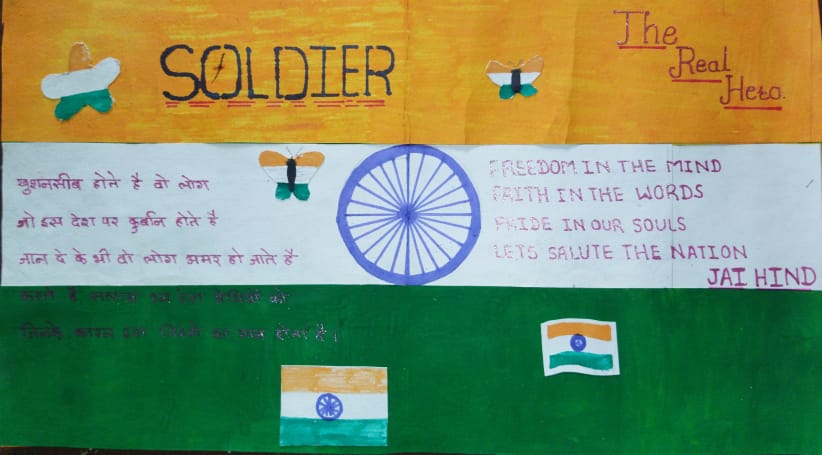 SOLDIER
The
Real
Hero.
खुशनसीब होते है वो लोग
जो इस देश पर कुर्बान होते है
जान दे के भी वो लोग अमर हो जाते है
करते है सलाम देश प्रेमियों को
जिनके कारन इस का मान होता है।
FREEDOM IN THE MIND
FAITH IN THE WORDS
PRIDE IN OUR SOULS
LETS SALUTE THE NATION
JAI HIND